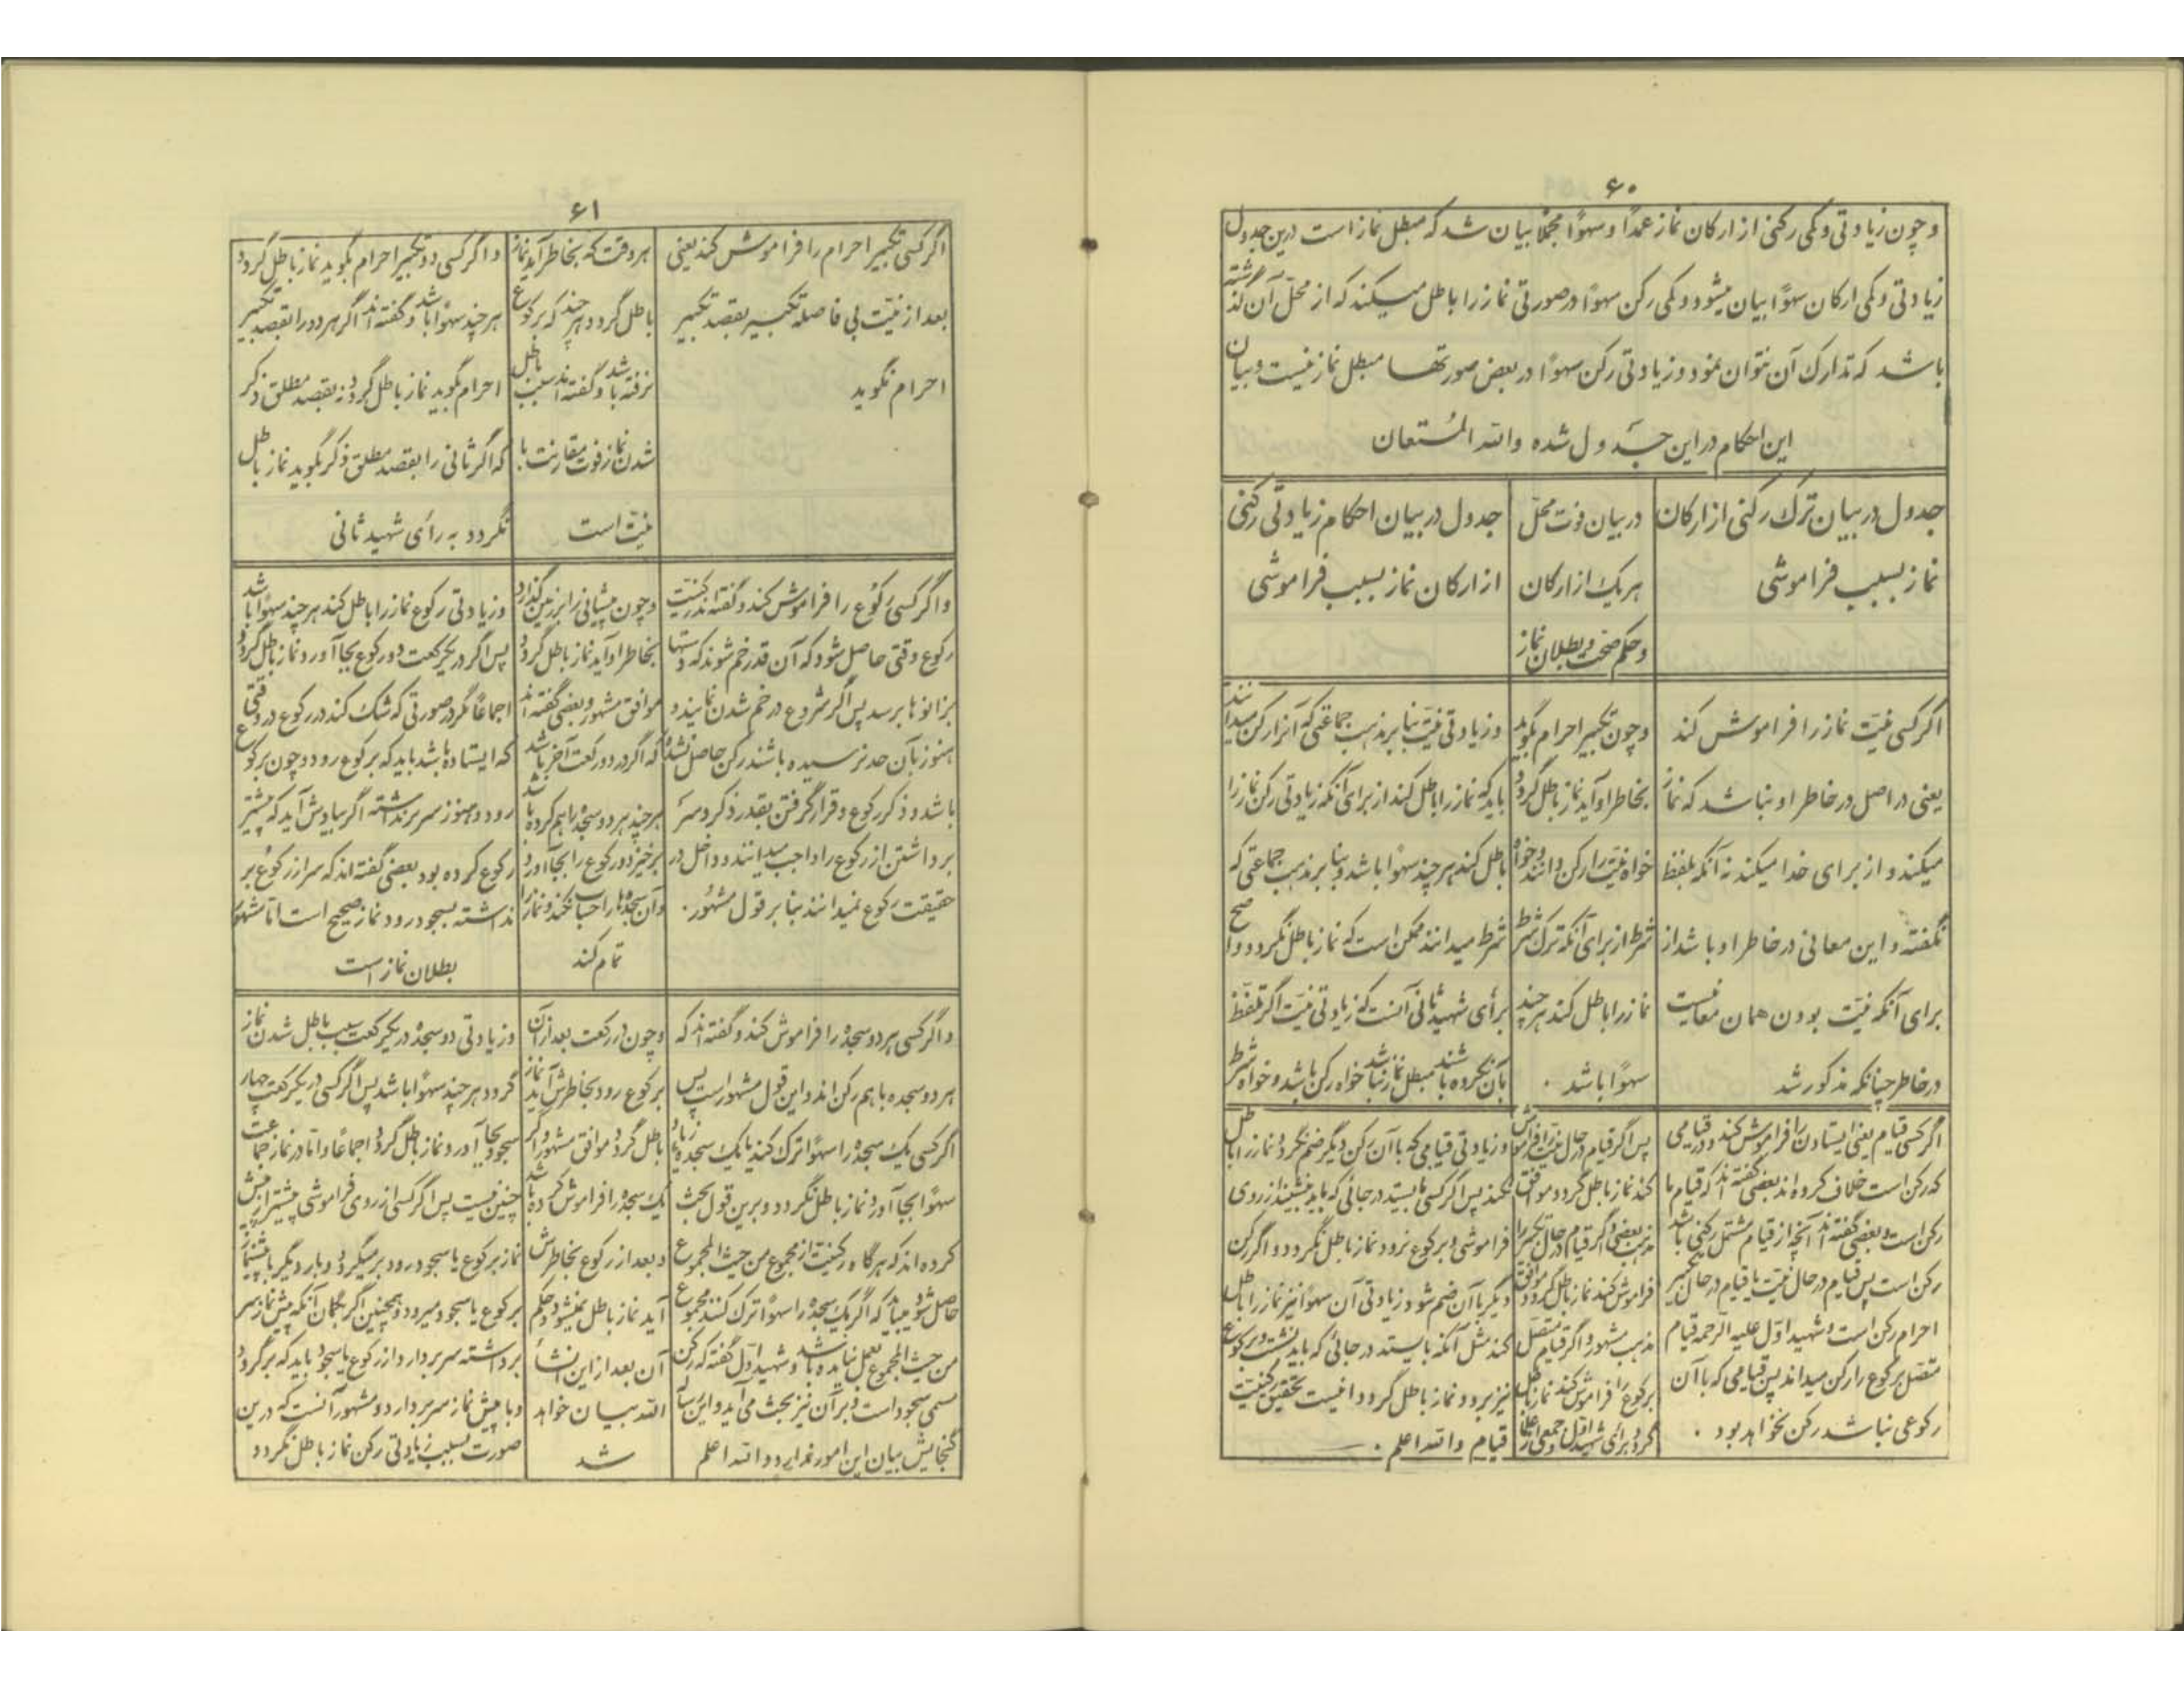 ۶۰
و چون زیادتی و کمی رکنی از ارکان نماز عمدًا و سهوًا مجملا بیان شد که مبطل نماز است درین جدول
زیادتی و کمی ارکان سهوًا بیان میشود و کمی رکن سهوًا در صورتی نماز را باطل میکند که از محلّ آن گذشته
باشد که تدارک آن نتوان نمود و زیادتی رکن سهوًا در بعض صورتها مبطل نماز نیست و بیان
این احکام در این جدول شده والله المُستعان
جدول در بیان ترک رکنی از ارکان
نماز بسبب فراموشی
در بیان فوت محلّ
هر یک از ارکان
و حکم صحّت و بطلان نماز
جدول در بیان احکام زیادتی رکنی
از ارکان نماز بسبب فراموشی
اگر کسی نیّت نماز را فراموش کند
یعنی در اصل در خاطر او نباشد که نماز
میکند و از برای خدا میکند نه آنکه بلفظ
نگفته و این معانی در خاطر او باشد از
برای آنکه نیّت بودن همان معانیست
در خاطر چنانکه مذکور شد
و چون تکبیر احرام بگوید
بخاطر او آید نماز باطل گردد
خواه نیّت را رکن دانند و خواه
شرط از برای آنکه ترک شرط
نماز را باطل کند هر چند
سهوًا باشد .
و زیادتی نیّت بنا بر مذهب جماعتی که آنرا رکن میدانند
باید که نماز را باطل کند از برای آنکه زیادتی رکن نماز را
باطل کند هر چند سهوًا باشد و بنا بر مذهب جماعتی که
شرط میدانند ممکن است که نماز باطل نگردد و اصح
برأی شهید ثانی آنست که زیادتی نیّت اگر تلفّظ
بآن نکرده باشند مبطل نماز نباشد خواه رکن باشد و خواه شرط
اگر کسی قیام یعنی ایستادن را فراموش کند و در قیامی
که رکن است خلاف کرده اند بعضی گفته اند که قیام ما
رکن است و بعضی گفته اند آنچه از قیام مشتمل رکنی باشد
رکن است پس قیام در حال نیّت یا قیام در حال تکبیر
احرام رکن است و شهید اوّل علیه الرحمه قیام
متصل برکوع را رکن میداند پس قیامی که با آن
رکوعی نباشد رکن نخواهد بود .
پس اگر قیام در حال نیّت را فراموش
کند نماز باطل گردد موافق
مذهب بعضی و اگر قیام در حال تکبیر را
فراموش کند نماز باطل گردد موافق
مذهب مشهور و اگر قیام متصل
برکوع را فراموش کند نماز باطل
گردد برای شهید اوّل و جمعی از علما
و زیادتی قیامی که با آن رکن دیگر ضم نگردد نماز را باطل
نکند پس اگر کسی بایستد در جائی که باید بنشیند از روی
فراموشی و برکوع نرود نماز باطل نگردد و اگر رکن
دیگر با آن ضم شود زیادتی آن سهوًا نیز نماز را باطل
کند مثل آنکه بایستد در جائی که باید نشست و برکوع
نیز برود نماز باطل گردد اینست تحقیق رکنیّت
قیام والله اعلم .
۶۱
اگر کسی تکبیر احرام را فراموش کند یعنی
بعد از نیّت بی فاصله تکبیر بقصد تکبیر
احرام نگوید
هر وقت که بخاطر آید نماز
باطل گردد هر چند که برکوع
نرفته باشد و گفته اند سبب باطل
شدن نماز فوت مقارنت با
نیّت است
و اگر کسی دو تکبیر احرام بگوید نماز باطل گردد
هر چند سهوًا باشد و گفته اند اگر هر دو را بقصد تکبیر
احرام بگوید نماز باطل گردد نه بقصد مطلق ذکر
که اگر ثانی را بقصد مطلق ذکر بگوید نماز باطل
نگردد به رأی شهید ثانی
و اگر کسی رکوع را فراموش کند و گفته اند رکنیّت
رکوع وقتی حاصل شود که آن قدر خم شوند که دستها
بزانوها برسد پس اگر شروع در خم شدن نمایند و
هنوز بآن حد نرسیده باشند رکن حاصل نشده
باشد و ذکر رکوع و قرار گرفتن بقدر ذکر و سر
برداشتن از رکوع را واجب میدانند و داخل در
حقیقت رکوع نمیدانند بنا بر قول مشهور.
و چون پیشانی را بر زمین گذارد
بخاطر او آید نماز باطل گردد
موافق مشهور و بعضی گفته اند
که اگر در دو رکعت آخر باشد
هر چند هر دو سجده را هم کرده باشد
برخیزد و رکوع را بجا آورد
و آن سجده ها را حساب نکند و نماز را
تمام کند
و زیادتی رکوع نماز را باطل کند هر چند سهوًا باشد
پس اگر در یکرکعت دو رکوع بجا آورد نماز باطل گردد
اجماعًا مگر در صورتی که شک کند در رکوع در وقتی
که ایستاده باشد باید که برکوع رود و چون برکوع
رود و هنوز سر برنداشته اگر بیادش آید که پیشتر
رکوع کرده بود بعضی گفته اند که سر از رکوع بر
نداشته بسجود رود و نماز صحیح است امّا مشهور
بطلان نماز است
و اگر کسی هر دو سجده را فراموش کند و گفته اند که
هر دو سجده با هم رکن اند و این قول مشهور است پس
اگر کسی یک سجده را سهوًا ترک کند یا یک سجده زیاد
سهوًا بجا آورد نماز باطل نگردد و برین قول بحث
کرده اند که هرگاه رکنیّت از مجموع من حیث المجموع
حاصل شود میباید که اگر یک سجده را سهوًا ترک کنند مجموع
من حیث المجموع بعمل نیامده باشد و شهید اوّل گفته که رکن
مسمی سجود است و بر آن نیز بحث می آید و این رساله
گنجایش بیان این امور ندارد والله اعلم
و چون در رکعت بعد از آن
برکوع رود بخاطرش آید نماز
باطل گردد موافق مشهور و اگر
یک سجده را فراموش کرده باشد
و بعد از رکوع بخاطرش
آید نماز باطل نمیشود و حکم
آن بعد از این انشأ
الله بیان خواهد
شد
و زیادتی دو سجده در یکرکعت سبب باطل شدن نماز
گردد هر چند سهوًا باشد پس اگر کسی در یکرکعت چهار
سجود بجا آورد نماز باطل گردد اجماعًا و امّا در نماز جماعت
چنین نیست پس اگر کسی از روی فراموشی پیشتر از پیش
نماز برکوع یا سجود رود برمیگردد و بار دیگر با پیشنماز
برکوع یا سجود میرود و همچنین اگر بگمان آنکه پیش نماز سر
برداشته سر بردارد از رکوع یا سجود باید که برگردد
و با پیش نماز سر بردارد و مشهور آنست که درین
صورت بسبب زیادتی رکن نماز باطل نگردد